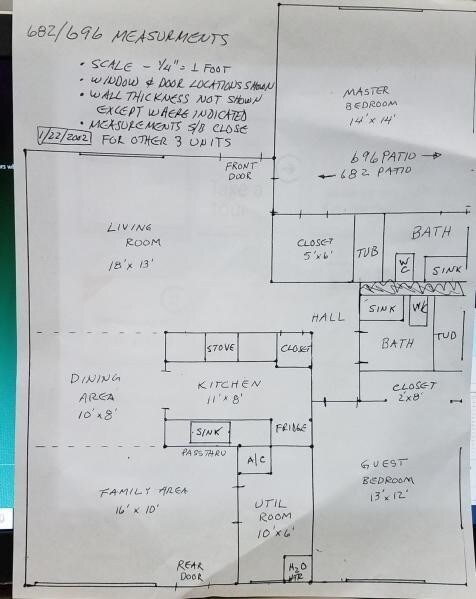 682/696 MEASURMENTS
• SCALE - 1/4" = 1 FOOT
• WINDOW & DOOR LOCATIONS SHOWN
• WALL THICKNESS NOT SHOWN
EXCEPT WHERE INDICATED
• MEASUREMENTS S/B CLOSE
FOR OTHER 3 UNITS
1/22/2002
MASTER
BEDROOM
14' x 14'
696 PATIO →
← 682 PATIO
FRONT
DOOR
LIVING
ROOM
18' x 13'
CLOSET
5' x 6'
TUB
BATH
WC
SINK
HALL
SINK
WC
BATH
TUB
CLOSET
2' x 8'
STOVE
CLOSET
KITCHEN
11' x 8'
DINING
AREA
10' x 8'
SINK
FRIDGE
PASSTHRU
A/C
FAMILY AREA
16' x 10'
UTIL
ROOM
10' x 6'
GUEST
BEDROOM
13' x 12'
REAR
DOOR
H2O
HTR